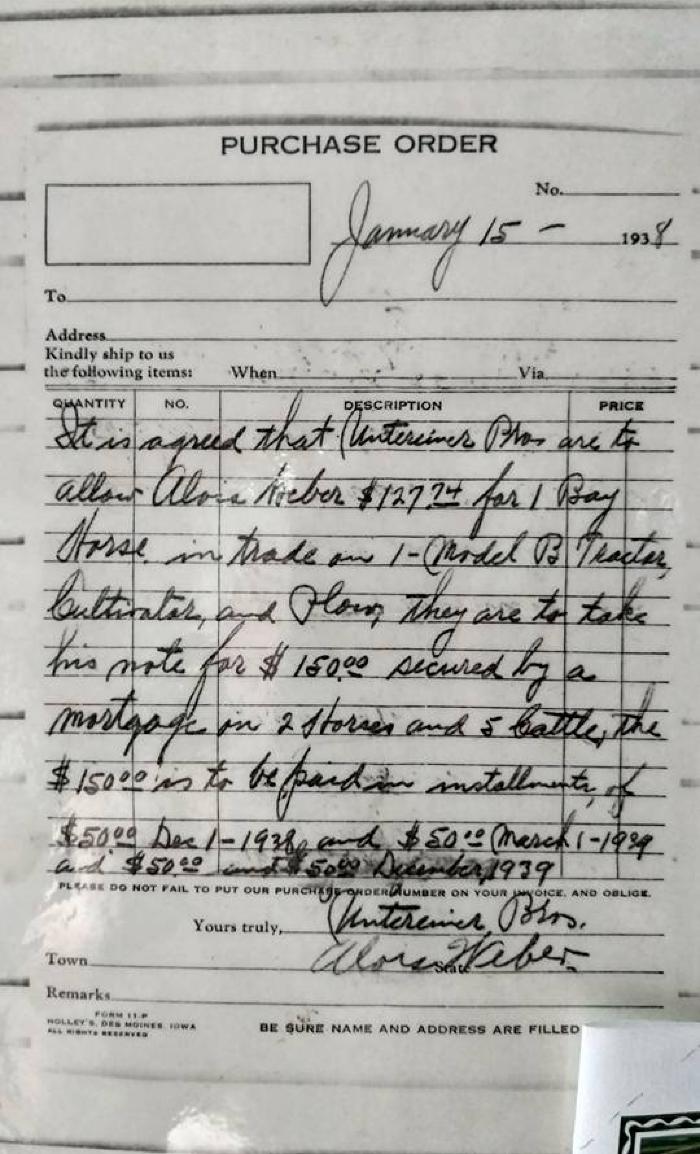 PURCHASE ORDER
No.
January 15 - 1938
To
Address
Kindly ship to us
the following items: When Via
QUANTITY NO. DESCRIPTION PRICE
It is agreed that Untereiner Bros are to
allow Alois Weber $127.74 for 1 Bay
Horse. in trade on 1-Model B Tractor,
Cultivator, and Plow, they are to take
his note for $150.00 secured by a
mortgage on 2 Horses and 5 Cattle, the
$150.00 is to be paid in installments, of
$50.00 Dec 1-1938, and $50.00 March 1-1939
and $50.00 and $50.00 December, 1939
PLEASE DO NOT FAIL TO PUT OUR PURCHASE ORDER NUMBER ON YOUR INVOICE, AND OBLIGE.
Yours truly, Untereiner, Bros.
Alois Weber
Town State
Remarks
FORM 11-P
HOLLEY'S, DES MOINES, IOWA
ALL RIGHTS RESERVED
BE SURE NAME AND ADDRESS ARE FILLED